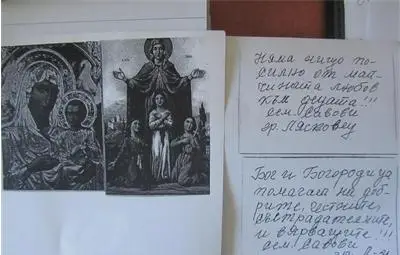 Няма нищо по-
силно от май-
чината любов
към децата!!!
сем. Савови
гр. Лясковец
Бог и Богородица
помагат на доб-
рите, честните,
състрадателните,
и вярващите!!!
сем. Савови